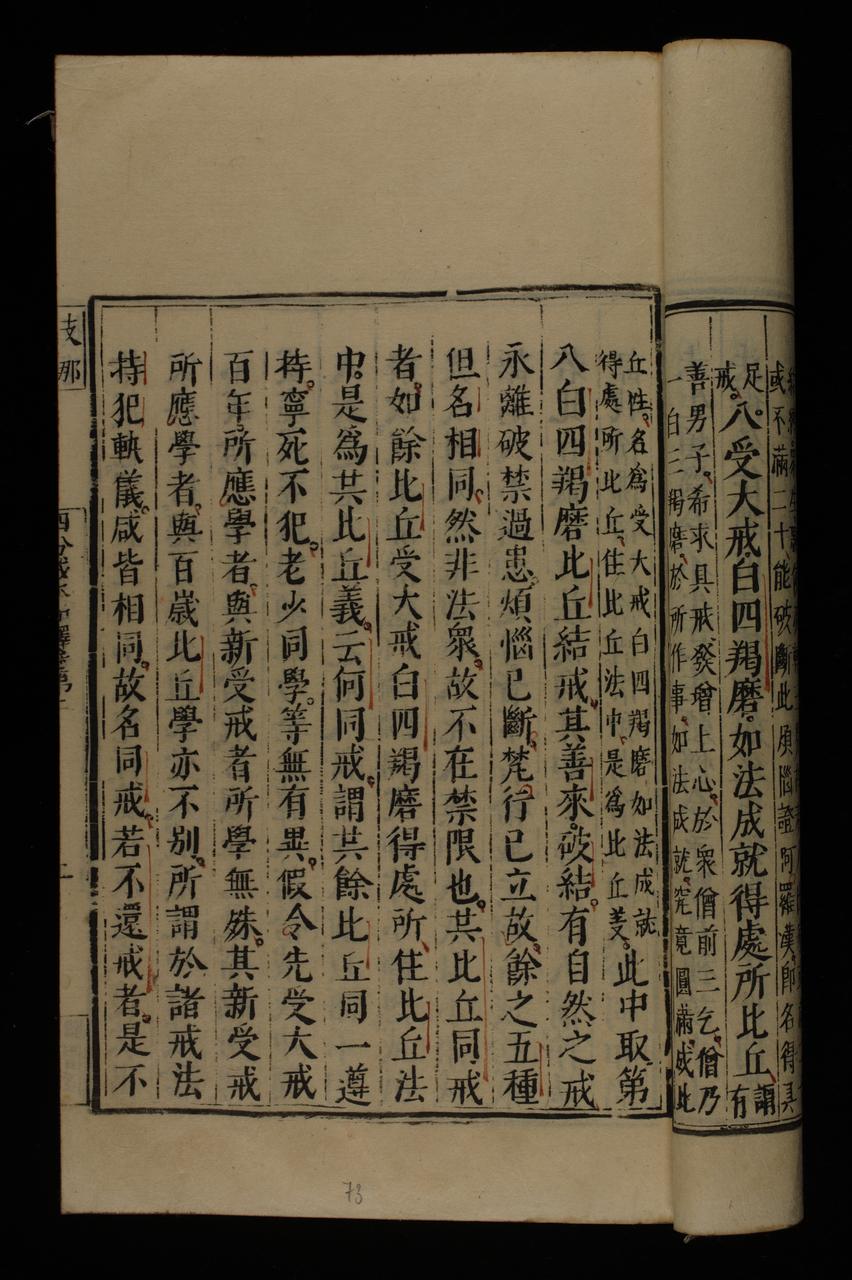 或不滿二十能破斷此煩惱證阿羅漢即名得具
足戒。八受大戒白四羯磨。如法成就得處所比丘謂有
善男子。希求具戒。發增上心。於眾僧前三乞。僧乃
一白三羯磨。於所作事。如法成就。究竟圓滿。成此
丘性。名為受大戒白四羯磨如法成就
得處所比丘。住比丘法中。是為比丘義。此中取第
八白四羯磨比丘結戒。其善來。破結。有自然之戒
永離破禁過患。煩惱已斷。梵行已立故。餘之五種
但名相同。然非法眾。故不在禁限也。共比丘同戒
者。如餘比丘受大戒白四羯磨得處所。住比丘法
中。是為共比丘義。云何同戒。謂其餘比丘同一遵
持。寧死不犯。老少同學。等無有異。假令先受大戒
百年。所應學者。與新受戒者所學無殊。其新受戒
所應學者。與百歲比丘學亦不別。所謂於諸戒法
持犯軌儀。咸皆相同。故名同戒。若不還戒者。是不
支那
73